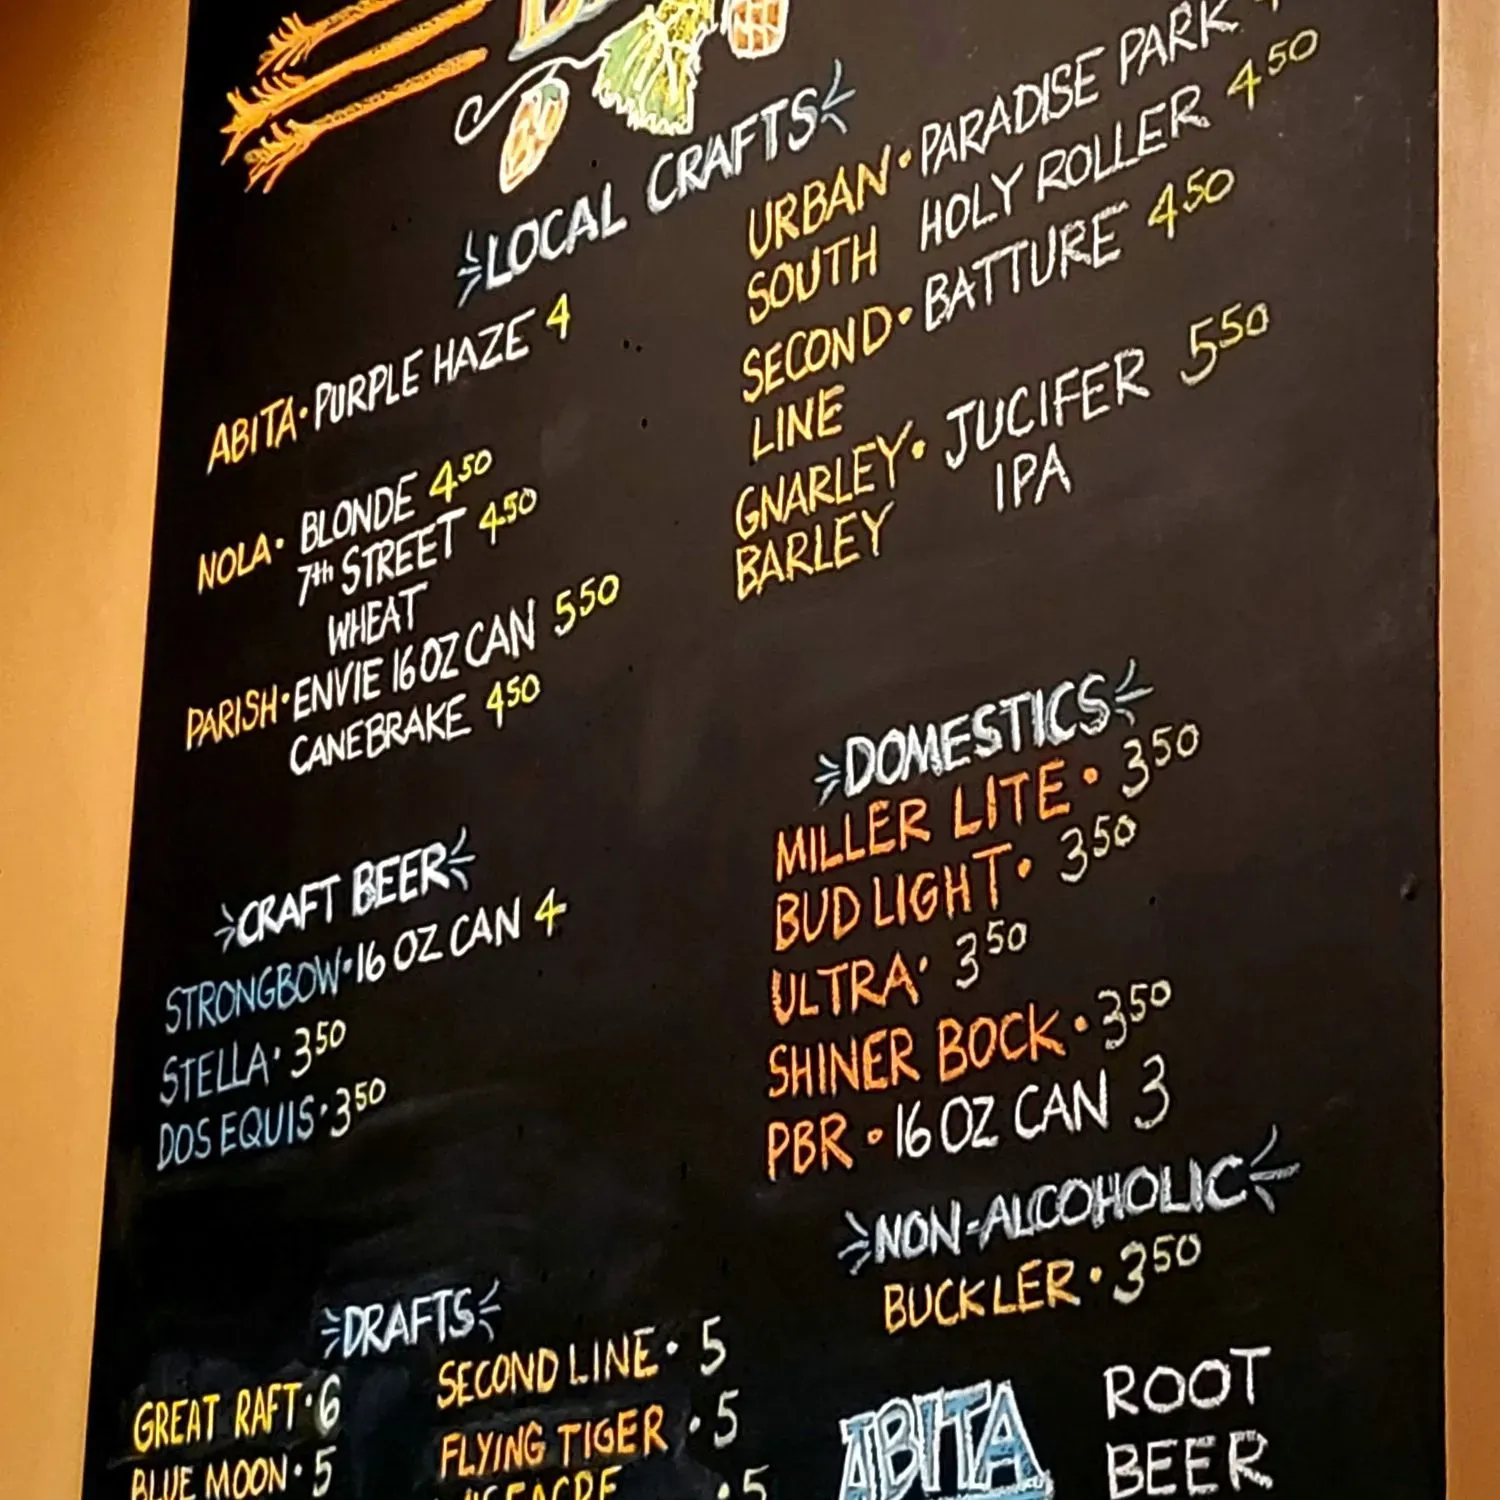 LOCAL CRAFTS
ABITA • PURPLE HAZE 4
NOLA • BLONDE 4 50
7th STREET 4 50
WHEAT
PARISH • ENVIE 16 OZ CAN 5 50
CANEBRAKE 4 50
URBAN • PARADISE PARK
SOUTH HOLY ROLLER 4 50
SECOND • BATTURE 4 50
LINE
GNARLEY • JUCIFER 5 50
BARLEY IPA
CRAFT BEER
STRONGBOW • 16 OZ CAN 4
STELLA • 3 50
DOS EQUIS • 3 50
DOMESTICS
MILLER LITE • 3 50
BUD LIGHT • 3 50
ULTRA • 3 50
SHINER BOCK • 3 50
PBR • 16 OZ CAN 3
NON-ALCOHOLIC
BUCKLER • 3 50
DRAFTS
GREAT RAFT • 6
BLUE MOON • 5
SECOND LINE • 5
FLYING TIGER • 5
• 5
ABITA ROOT
BEER